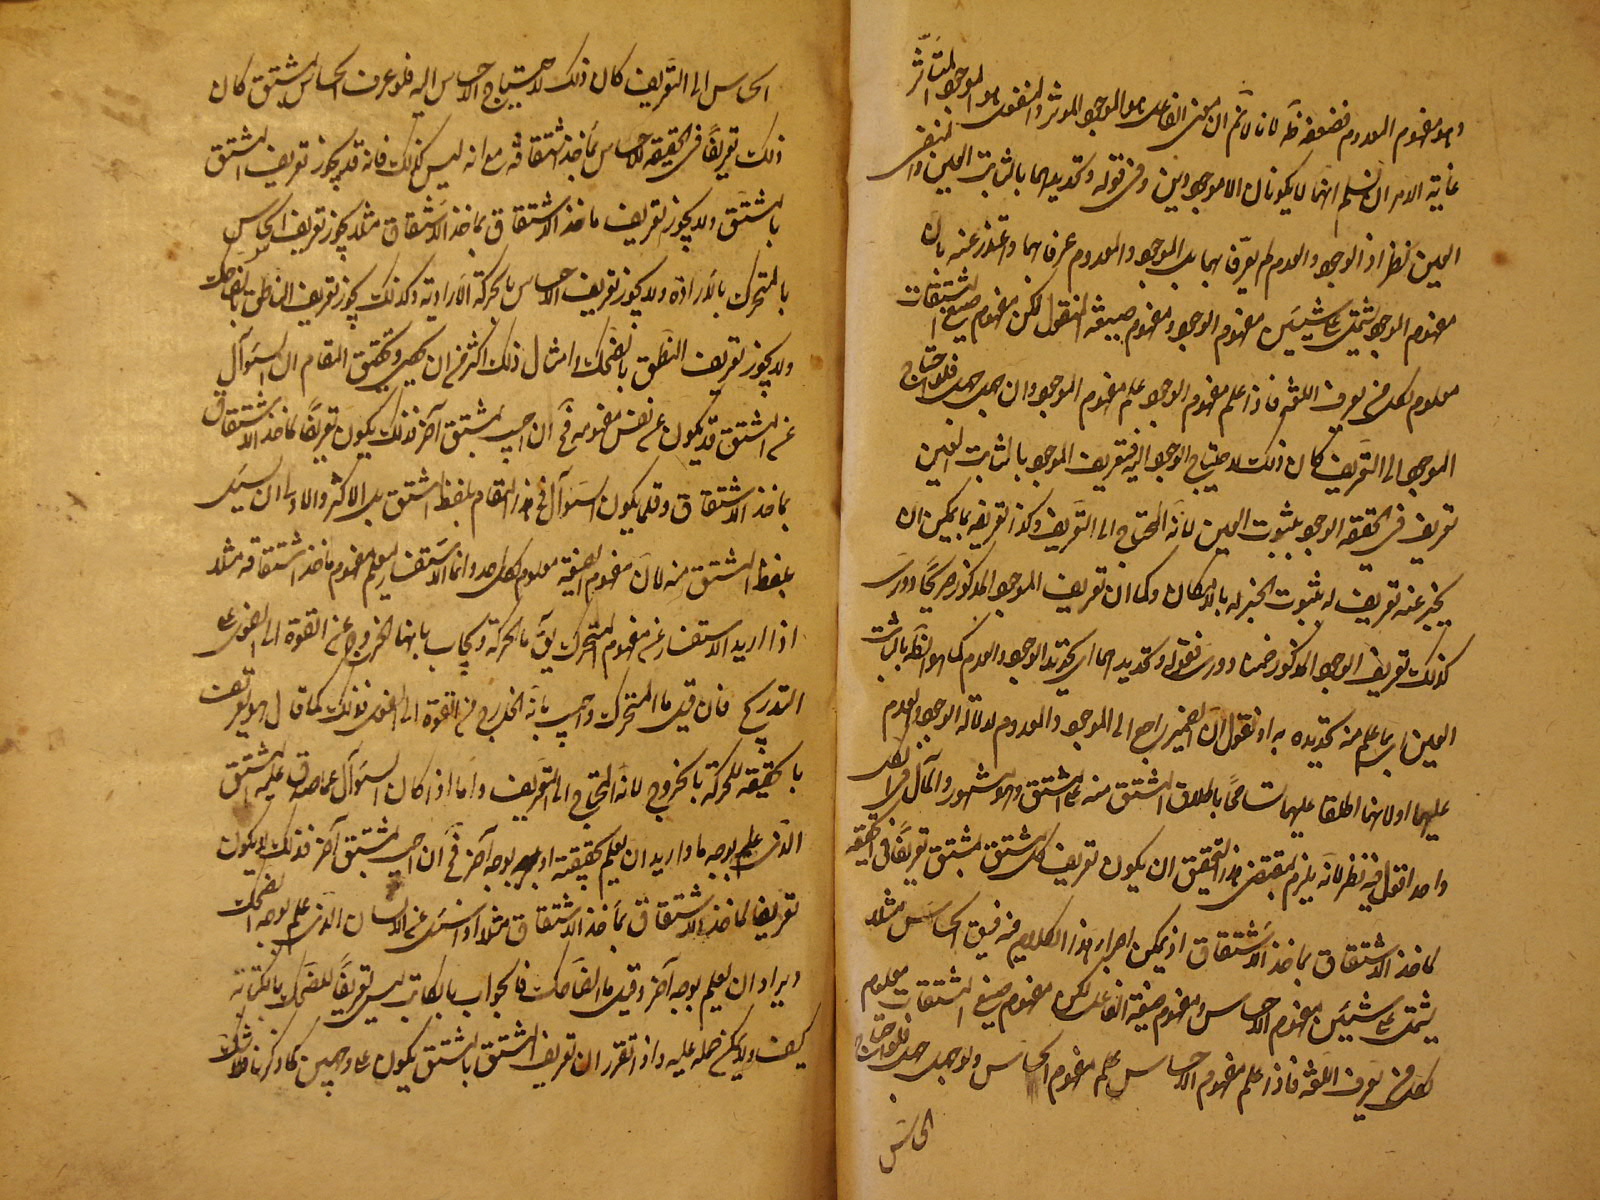 وهو مفهوم المعدوم فضعفه ظ لانا لا نم ان معنى الفاعل هو الموجود الموثر والمنفعل هو الموجود المتاثر
غاية الامر ان نسلم انهما لا يكونان الا موجودين وفى قوله وتحديدهما بالثابت العين والمنفى
العين نظر اذ الوجود والعدم لم يعرّفا بهما بل الموجود والمعدوم عرفا بهما واعتذر عنه بان
مفهوم الموجود يشتمل على شيئين مفهوم الوجود ومفهوم صيغة المفعول لكن مفهوم صيغ المشتقات
معلوم لكل من يعرف اللغة فاذا علم مفهوم الوجود علم مفهوم الموجود وان جهل جهل فلو احتاج
الموجود الى التعريف كان ذلك لاحتياج الوجود اليه فتعريف الموجود بالثابت العين
تعريف فى الحقيقة الوجود بثبوت العين لانه المحتاج الى التعريف وكذا تعريفه بما يمكن ان
يخبر عنه تعريف له بثبوت الخبر له بالامكان وكما ان تعريف الموجود المذكور صريحا دورى
كذلك تعريف الوجود المذكور ضمنا دورى فقوله وتحديدهما اى تحديد الوجود والعدم كما هو الظ بالثابت
العين اى بما علم من تحديده به او نقول ان الضمير راجع الى الموجود والمعدوم لدلالة الوجود والعدم
عليهما او لانهما اطلقا عليهما تسامحا باطلاق المشتق منه على المشتق وهو مشهور والمآل فى الكل
واحد اقول فيه نظر لانه يلزم بمقتضى هذا التحقيق ان يكون تعريف كل مشتق بمشتق تعريفا فى الحقيقة
لماخذ الاشتقاق بماخذ الاشتقاق اذ يمكن اجراء هذا الكلام فيه فيق الحساس مثلا
يشتمل على شيئين مفهوم الاحساس ومفهوم صيغة الفاعل لكن مفهوم صيغ المشتقات معلوم
لكل من يعرف اللغة فاذا علم مفهوم الاحساس علم مفهوم الحساس ولو جهل جهل فلو احتاج
الحساس
الحساس الى التعريف كان ذلك لاحتياج الاحساس اليه فلو عرف الحساس بالمشتق كان
ذلك تعريفا فى الحقيقة للاحساس بماخذ اشتقاقه مع انه ليس كذلك فانه قد يجوز تعريف المشتق
بالمشتق ولا يجوز تعريف ماخذ الاشتقاق بماخذ الاشتقاق مثلا يجوز تعريف الحساس
بالمتحرك بالارادة ولا يجوز تعريف الاحساس بالحركة الارادية وكذلك يجوز تعريف الناطق بالضاحك
ولا يجوز تعريف النطق بالضحك وامثال ذلك اكثر من ان يحصى وتحقيق المقام ان السؤال
عن المشتق قد يكون عن نفس مفهومه فح ان اجيب بمشتق آخر فذلك يكون تعريفا لماخذ الاشتقاق
بماخذ الاشتقاق وقلما يكون السؤال فى هذا المقام بلفظ المشتق بل الاكثر والاولى ان يسئل
بلفظ المشتق منه لان مفهوم الصيغة معلوم لكل احد وانما الاستفسار ليعلم مفهوم ماخذ اشتقاقه مثلا
اذا اريد الاستفسار عن مفهوم المتحرك يق ما الحركة ويجاب بانها الخروج عن القوة الى الفعل على
التدريج فان قيل ما المتحرك واجيب بانه الخارج من القوة الى الفعل فذلك كما قال هو تعريف
بالحقيقة للحركة بالخروج لانه المحتاج الى التعريف واما اذا كان السؤال عما صدق عليه المشتق
الذى علم بوجه ما واريد ان يعلم بحقيقته او بوجه آخر فح ان اجيب بمشتق آخر فذلك لا يكون
تعريفا لماخذ الاشتقاق بماخذ الاشتقاق مثلا اذا سئل عن الانسان الذى علم بوجه الضحك
ويراد ان يعلم بوجه آخر وقيل ما الضاحك فالجواب بالكاتب ليس تعريفا للضحك بالكتابة
كيف ولا يمكن حمله عليه واذا تقرر ان تعريف المشتق بالمشتق يكون على وجهين كما ذكرنا فلا شك